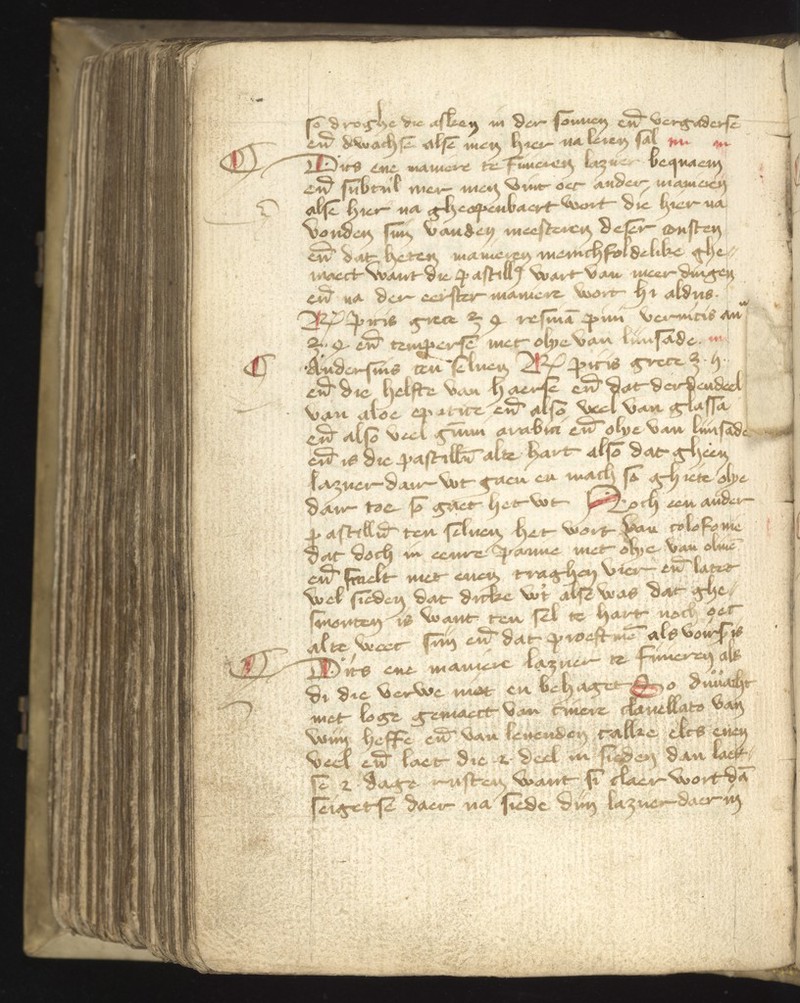 so droghe die asscen in der sonnen en̄ vergaderse
en̄ dwachse alse men hier na leren sal
Dits ene maniere te fineren lazuer bequaem
en̄ subtijl mer men vint oec ander manieren
alse hier na gheopenbaert wort die hier na
vonden sijn vanden meesteren deser consten
en̄ dat heten manieren menichfoldelike ghe
maect want die pastill wart van meer dingen
en̄ na der eerster maniere wort hi aldus.
Rx picis grece ℥ 4 resina pini vernicis an̄
℥ 4 en̄ temperse met olye van lijnsade.
Andersins ten seluen Rx picis grece ℥ ij.
en̄ die helfte van haerse en̄ dat derdendeel
van aloe epatite en̄ also veel van glassa
en̄ also veel gum̄ arabici en̄ olye van lijnsade
en̄ is die pastillū alte hart also dat gheen
lazuer dair wt gaen en mach so ghiete olye
dair toe so gaet het wt Noch een ander
pastillū ten seluen het wort van colofonie
dat doch in eenre panne met olye van oliuē
en̄ smelt met enen traghen vier en̄ latet
wel sieden dat dicke wt alse was dat ghe
smouten is want ten sel te hart noch oec
alte weec sijn en̄ dat proeftmē als voirs̄ is
Dits ene maniere lazuer te fineren als
di die verwe niet en behaget So duuacht
met loge gemaect van cinere clauellato van
wijn heffe en̄ van leuenden calke elcs euen
veel en̄ laet die 2 deel in sieden dan laet
se 2 dage rusten want si claer wort dā
seigetse daer na siede dijn lazuer daer in